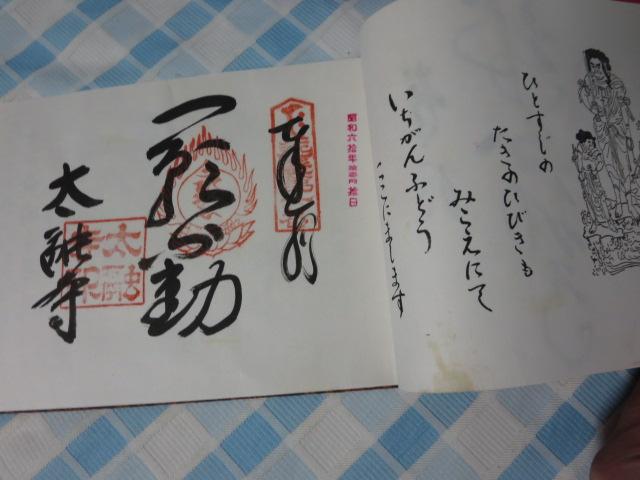 ひとすじの
たきのひびきも
みこえにて
いちがんふどう
ここにまします
昭和六拾年 拾日
奉拝
一願不動
太融寺
太融寺印